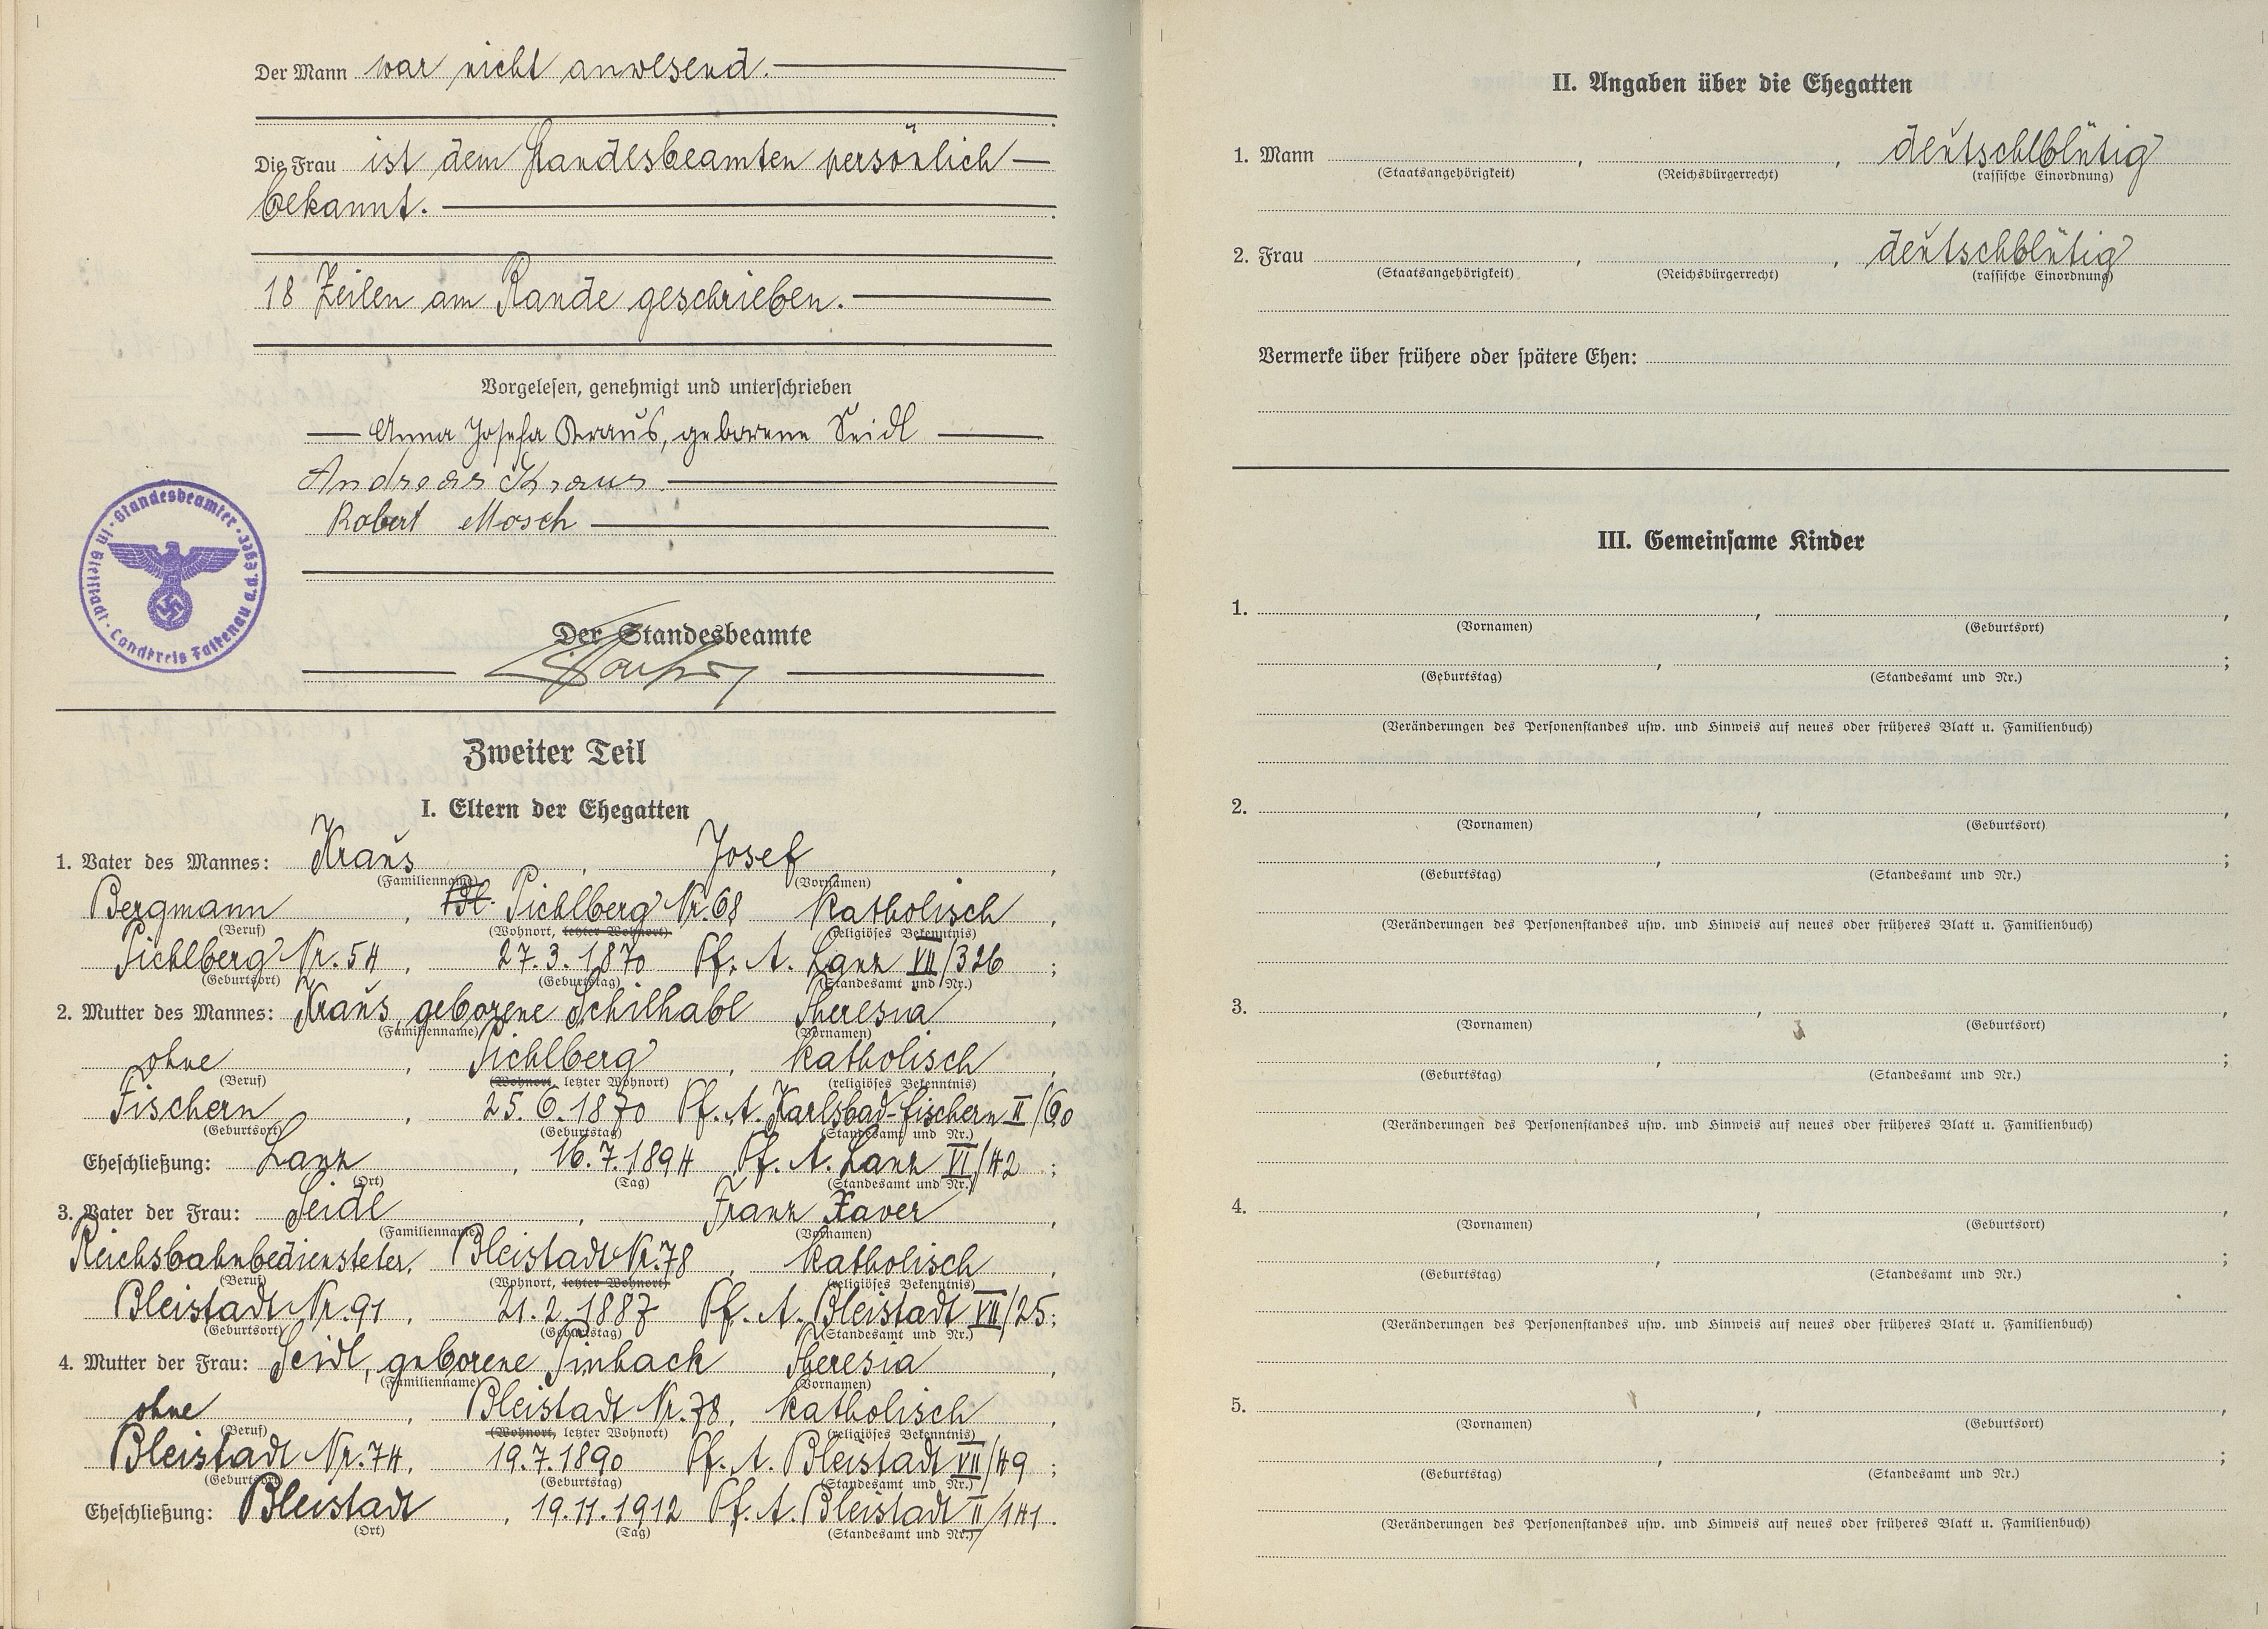 Der Mann war nicht anwesend.
Die Frau ist dem Standesbeamten persönlich
bekannt.
18 Zeilen am Rande geschrieben.
Vorgelesen, genehmigt und unterschrieben
Anna Josefa Kraus, geborene Seidl
Andreas Kraus.
Robert Mosch
Standesbeamter in Bleistadt · Landkreis Falkenau a.d. Eger
Der Standesbeamte
Zweiter Teil
I. Eltern der Ehegatten
1. Vater des Mannes: Kraus, Josef,
(Familienname) (Vornamen)
Bergmann, Pichlberg Nr. 68 katholisch,
(Beruf) (Wohnort, letzter Wohnort) (religiöses Bekenntnis)
Pichlberg Nr. 54, 27.3.1870 Pf. A. Lanz VII/326;
(Geburtsort) (Geburtstag) (Standesamt und Nr.)
2. Mutter des Mannes: Kraus, geborene Schilhabl Theresia,
(Familienname) (Vornamen)
ohne, Pichlberg, katholisch,
(Beruf) (Wohnort, letzter Wohnort) (religiöses Bekenntnis)
Fischern, 25.6.1870 Pf. A. Karlsbad-Fischern II/60
(Geburtsort) (Geburtstag) (Standesamt und Nr.)
Eheschließung: Lanz, 16.7.1894, Pf. A. Lanz VI/42;
(Ort) (Tag) (Standesamt und Nr.)
3. Vater der Frau: Seidl, Franz Xaver,
(Familienname) (Vornamen)
Reichsbahnbediensteter, Bleistadt Nr. 78, katholisch,
(Beruf) (Wohnort, letzter Wohnort) (religiöses Bekenntnis)
Bleistadt Nr. 91, 21.2.1887 Pf. A. Bleistadt VII/25;
(Geburtsort) (Geburtstag) (Standesamt und Nr.)
4. Mutter der Frau: Seidl, geborene Simbach Theresia,
(Familienname) (Vornamen)
ohne, Bleistadt Nr. 78, katholisch,
(Beruf) (Wohnort, letzter Wohnort) (religiöses Bekenntnis)
Bleistadt Nr. 74, 19.7.1890 Pf. A. Bleistadt VII/49;
(Geburtsort) (Geburtstag) (Standesamt und Nr.)
Eheschließung: Bleistadt, 19.11.1912 Pf. A. Bleistadt II/141.
(Ort) (Tag) (Standesamt und Nr.)
II. Angaben über die Ehegatten
1. Mann , , deutschlblütig
(Staatsangehörigkeit) (Reichsbürgerrecht) (rassische Einordnung)
2. Frau , , deutschblütig
(Staatsangehörigkeit) (Reichsbürgerrecht) (rassische Einordnung)
Vermerke über frühere oder spätere Ehen:
III. Gemeinsame Kinder
1. , ,
(Vornamen) (Geburtsort)
, ;
(Geburtstag) (Standesamt und Nr.)
(Veränderungen des Personenstandes usw. und Hinweis auf neues oder früheres Blatt u. Familienbuch)
2. , ,
(Vornamen) (Geburtsort)
, ;
(Geburtstag) (Standesamt und Nr.)
(Veränderungen des Personenstandes usw. und Hinweis auf neues oder früheres Blatt u. Familienbuch)
3. , ,
(Vornamen) (Geburtsort)
, ;
(Geburtstag) (Standesamt und Nr.)
(Veränderungen des Personenstandes usw. und Hinweis auf neues oder früheres Blatt u. Familienbuch)
4. , ,
(Vornamen) (Geburtsort)
, ;
(Geburtstag) (Standesamt und Nr.)
(Veränderungen des Personenstandes usw. und Hinweis auf neues oder früheres Blatt u. Familienbuch)
5. , ,
(Vornamen) (Geburtsort)
, ;
(Geburtstag) (Standesamt und Nr.)
(Veränderungen des Personenstandes usw. und Hinweis auf neues oder früheres Blatt u. Familienbuch)